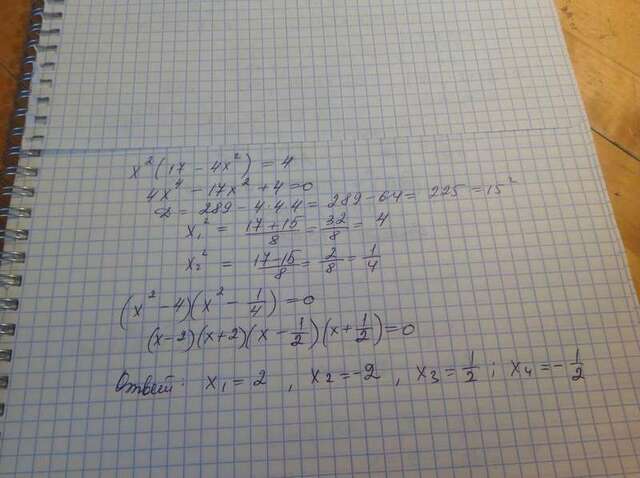 x²(17 - 4x²) = 4
4x⁴ - 17x² + 4 = 0
D = 289 - 4·4·4 = 289 - 64 = 225 = 15²
x₁² = (17+15)/8 = 32/8 = 4
x₂² = (17-15)/8 = 2/8 = 1/4
(x² - 4)(x² - 1/4) = 0
(x-2)(x+2)(x - 1/2)(x + 1/2) = 0
Ответ: x₁ = 2 , x₂ = -2 , x₃ = 1/2 ; x₄ = - 1/2